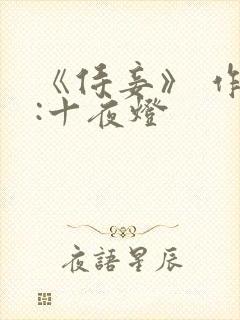 《侍妾》 作
:十夜燈
夜語星辰